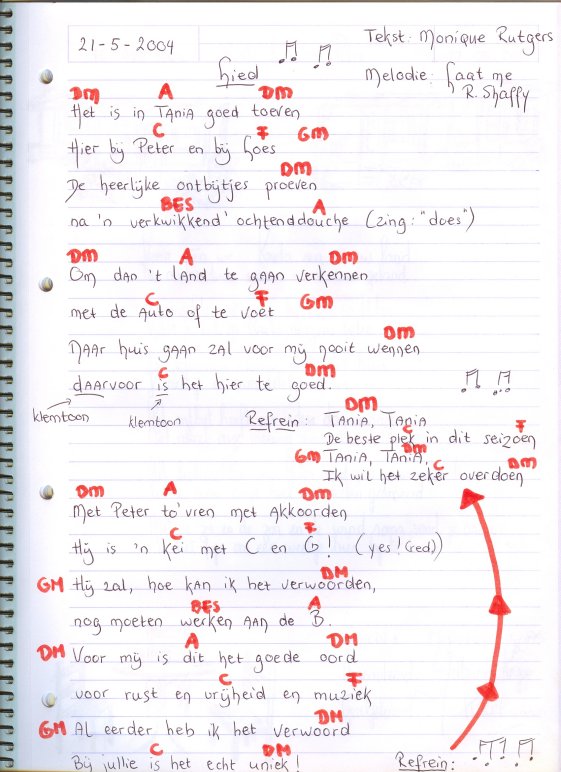 21-5-2004
Tekst: Monique Rutgers
Lied
Melodie: Laat me
R. Shaffy
DM A DM
Het is in TANIA goed toeven
C F GM
Hier bij Peter en bij Loes
DM
De heerlijke ontbijtjes proeven
BES A
na 'n verkwikkend' ochtenddouche (zing: "does")
DM A DM
Om dan 't LAND te gaan verkennen
C F GM
met de Auto of te voet
DM
NAAR huis gaan zal voor mij nooit wennen
C DM
dAARvoor is het hier te goed.
klemtoon klemtoon
DM
Refrein: TANIA, TANIA
C F
De beste plek in dit seizoen
GM DM
TANIA, TANIA,
C DM
Ik wil het zeker overdoen
DM A DM
Met Peter to'vren met Akkoorden
C F
Hij is 'n kei met C en G! (yes! (red))
DM
GM Hij zal, hoe kan ik het verwoorden,
BES A
nog moeten werken AAN de B.
A DM
DM Voor mij is dit het goede oord
C F
voor rust en vrijheid en muziek
DM
GM Al eerder heb ik het verwoord
C DM
Bij jullie is het echt uniek!
Refrein: